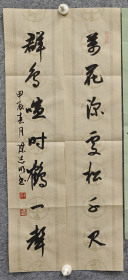 万花深处松千尺
群鸟喧时鹤一声
甲辰春月